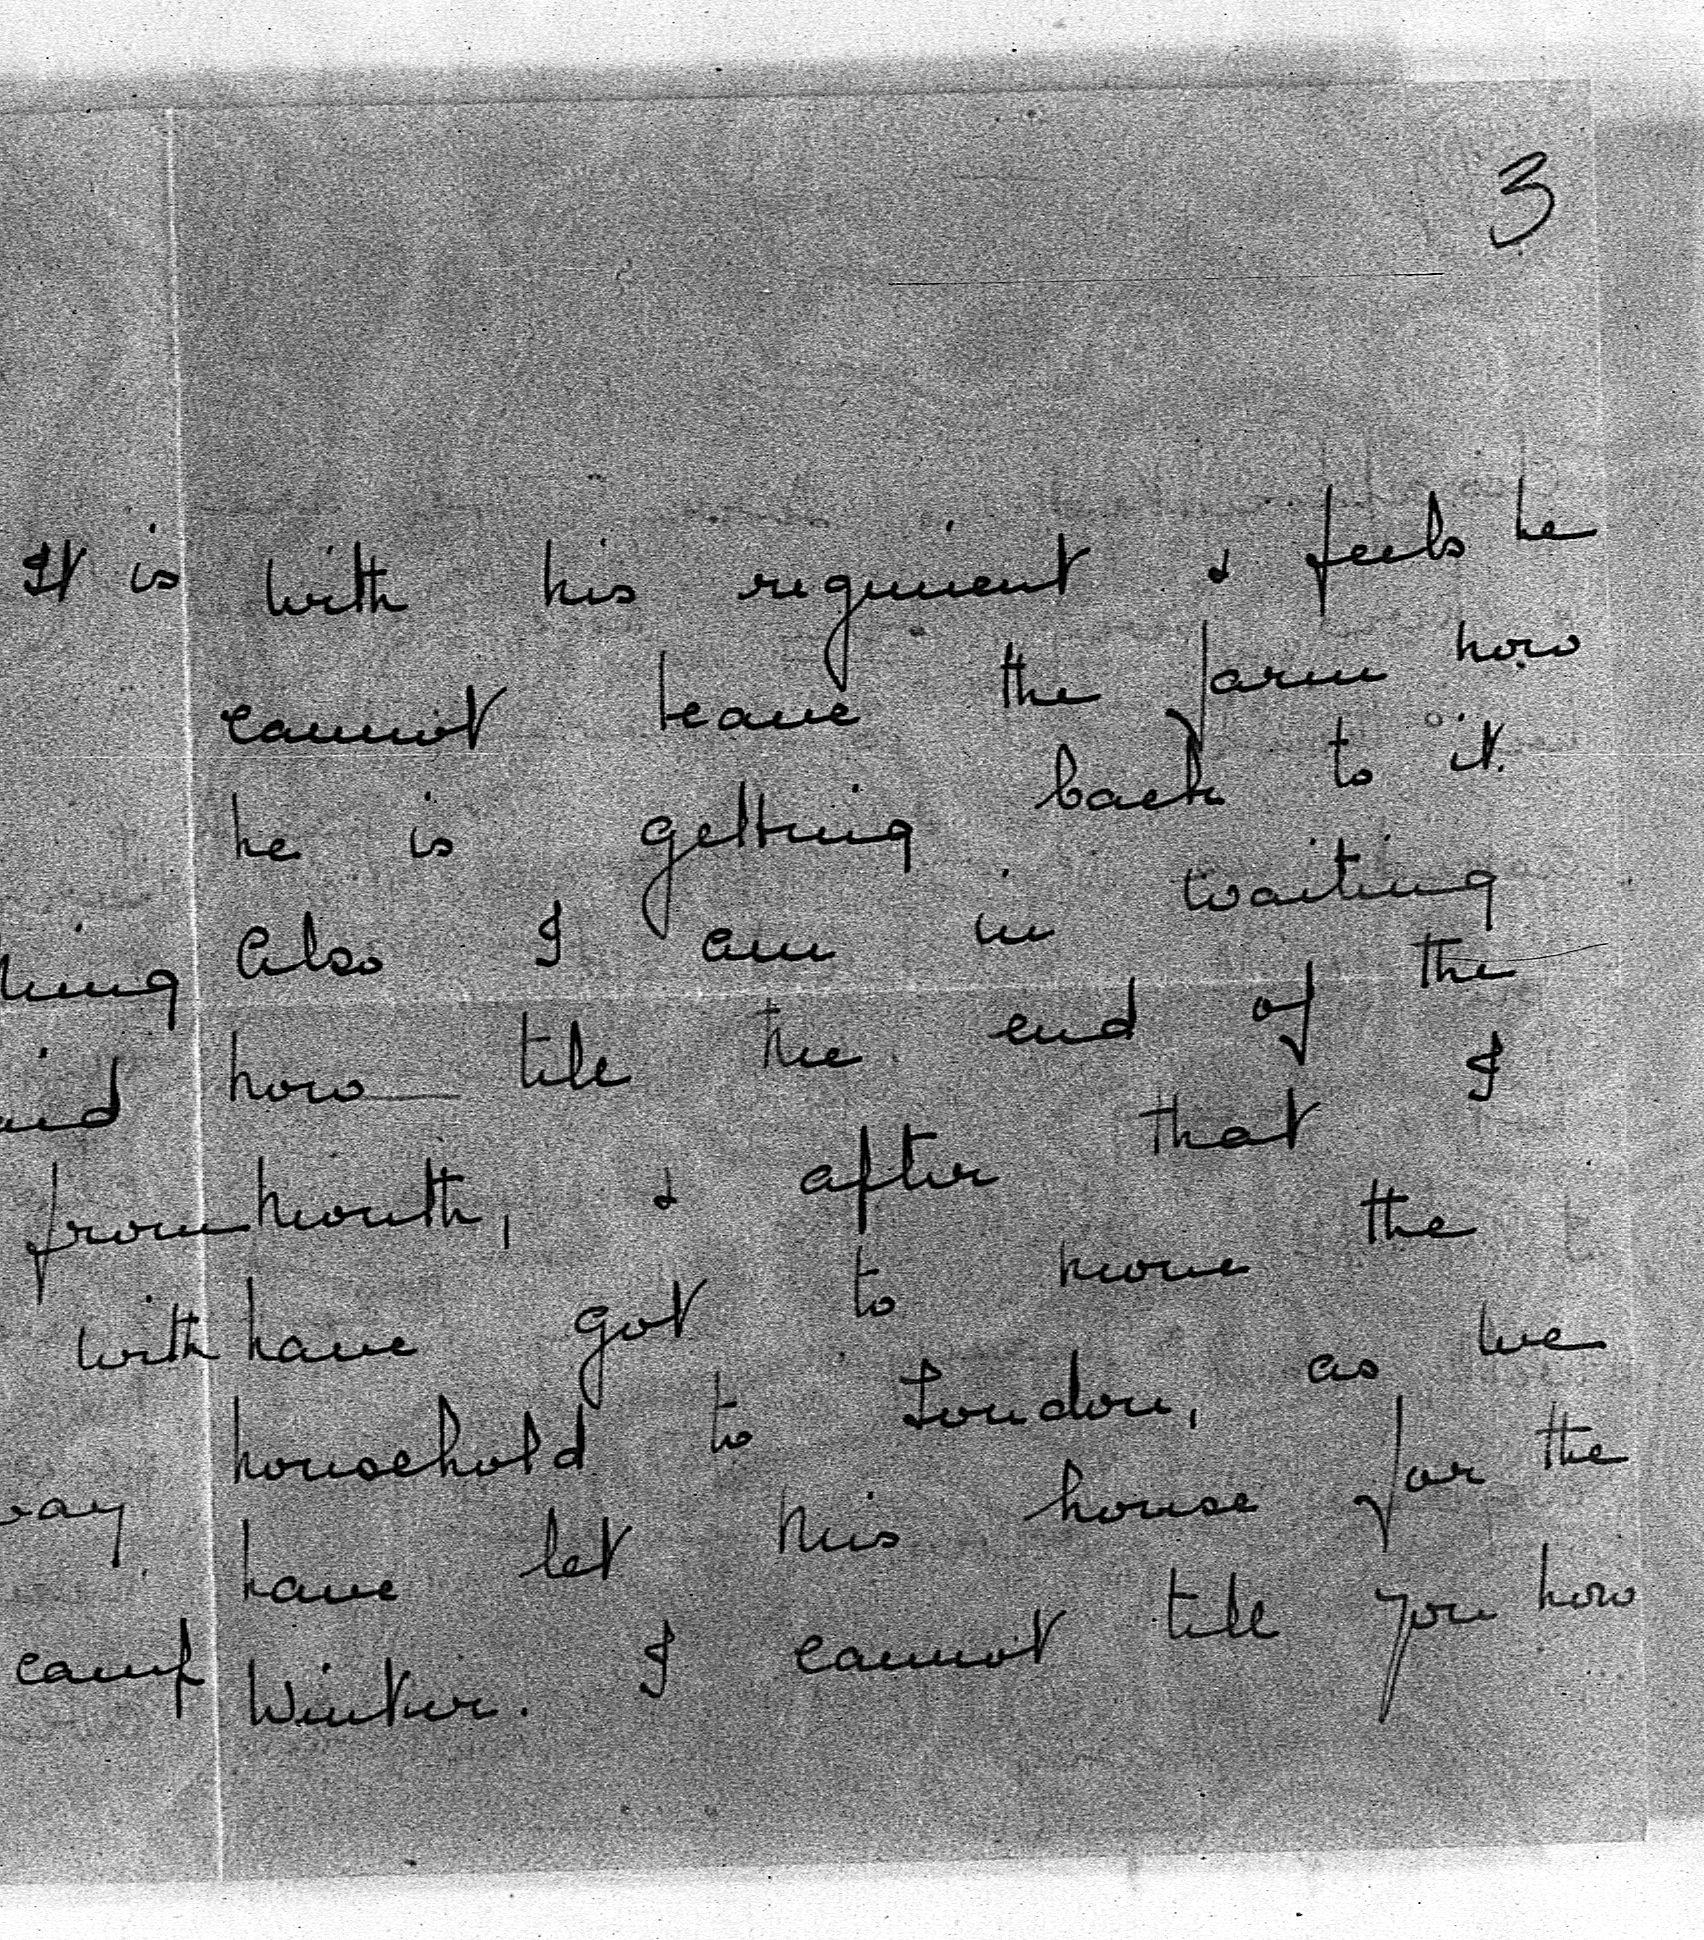 3
with his regiment & feels he
cannot leave the farm now
he is getting back to it.
Also I am in waiting
now till the end of the
month, & after that I
have got to move the
household to London, as we
have let this house for the
Winter. I cannot tell you how
It is
from
with
camp